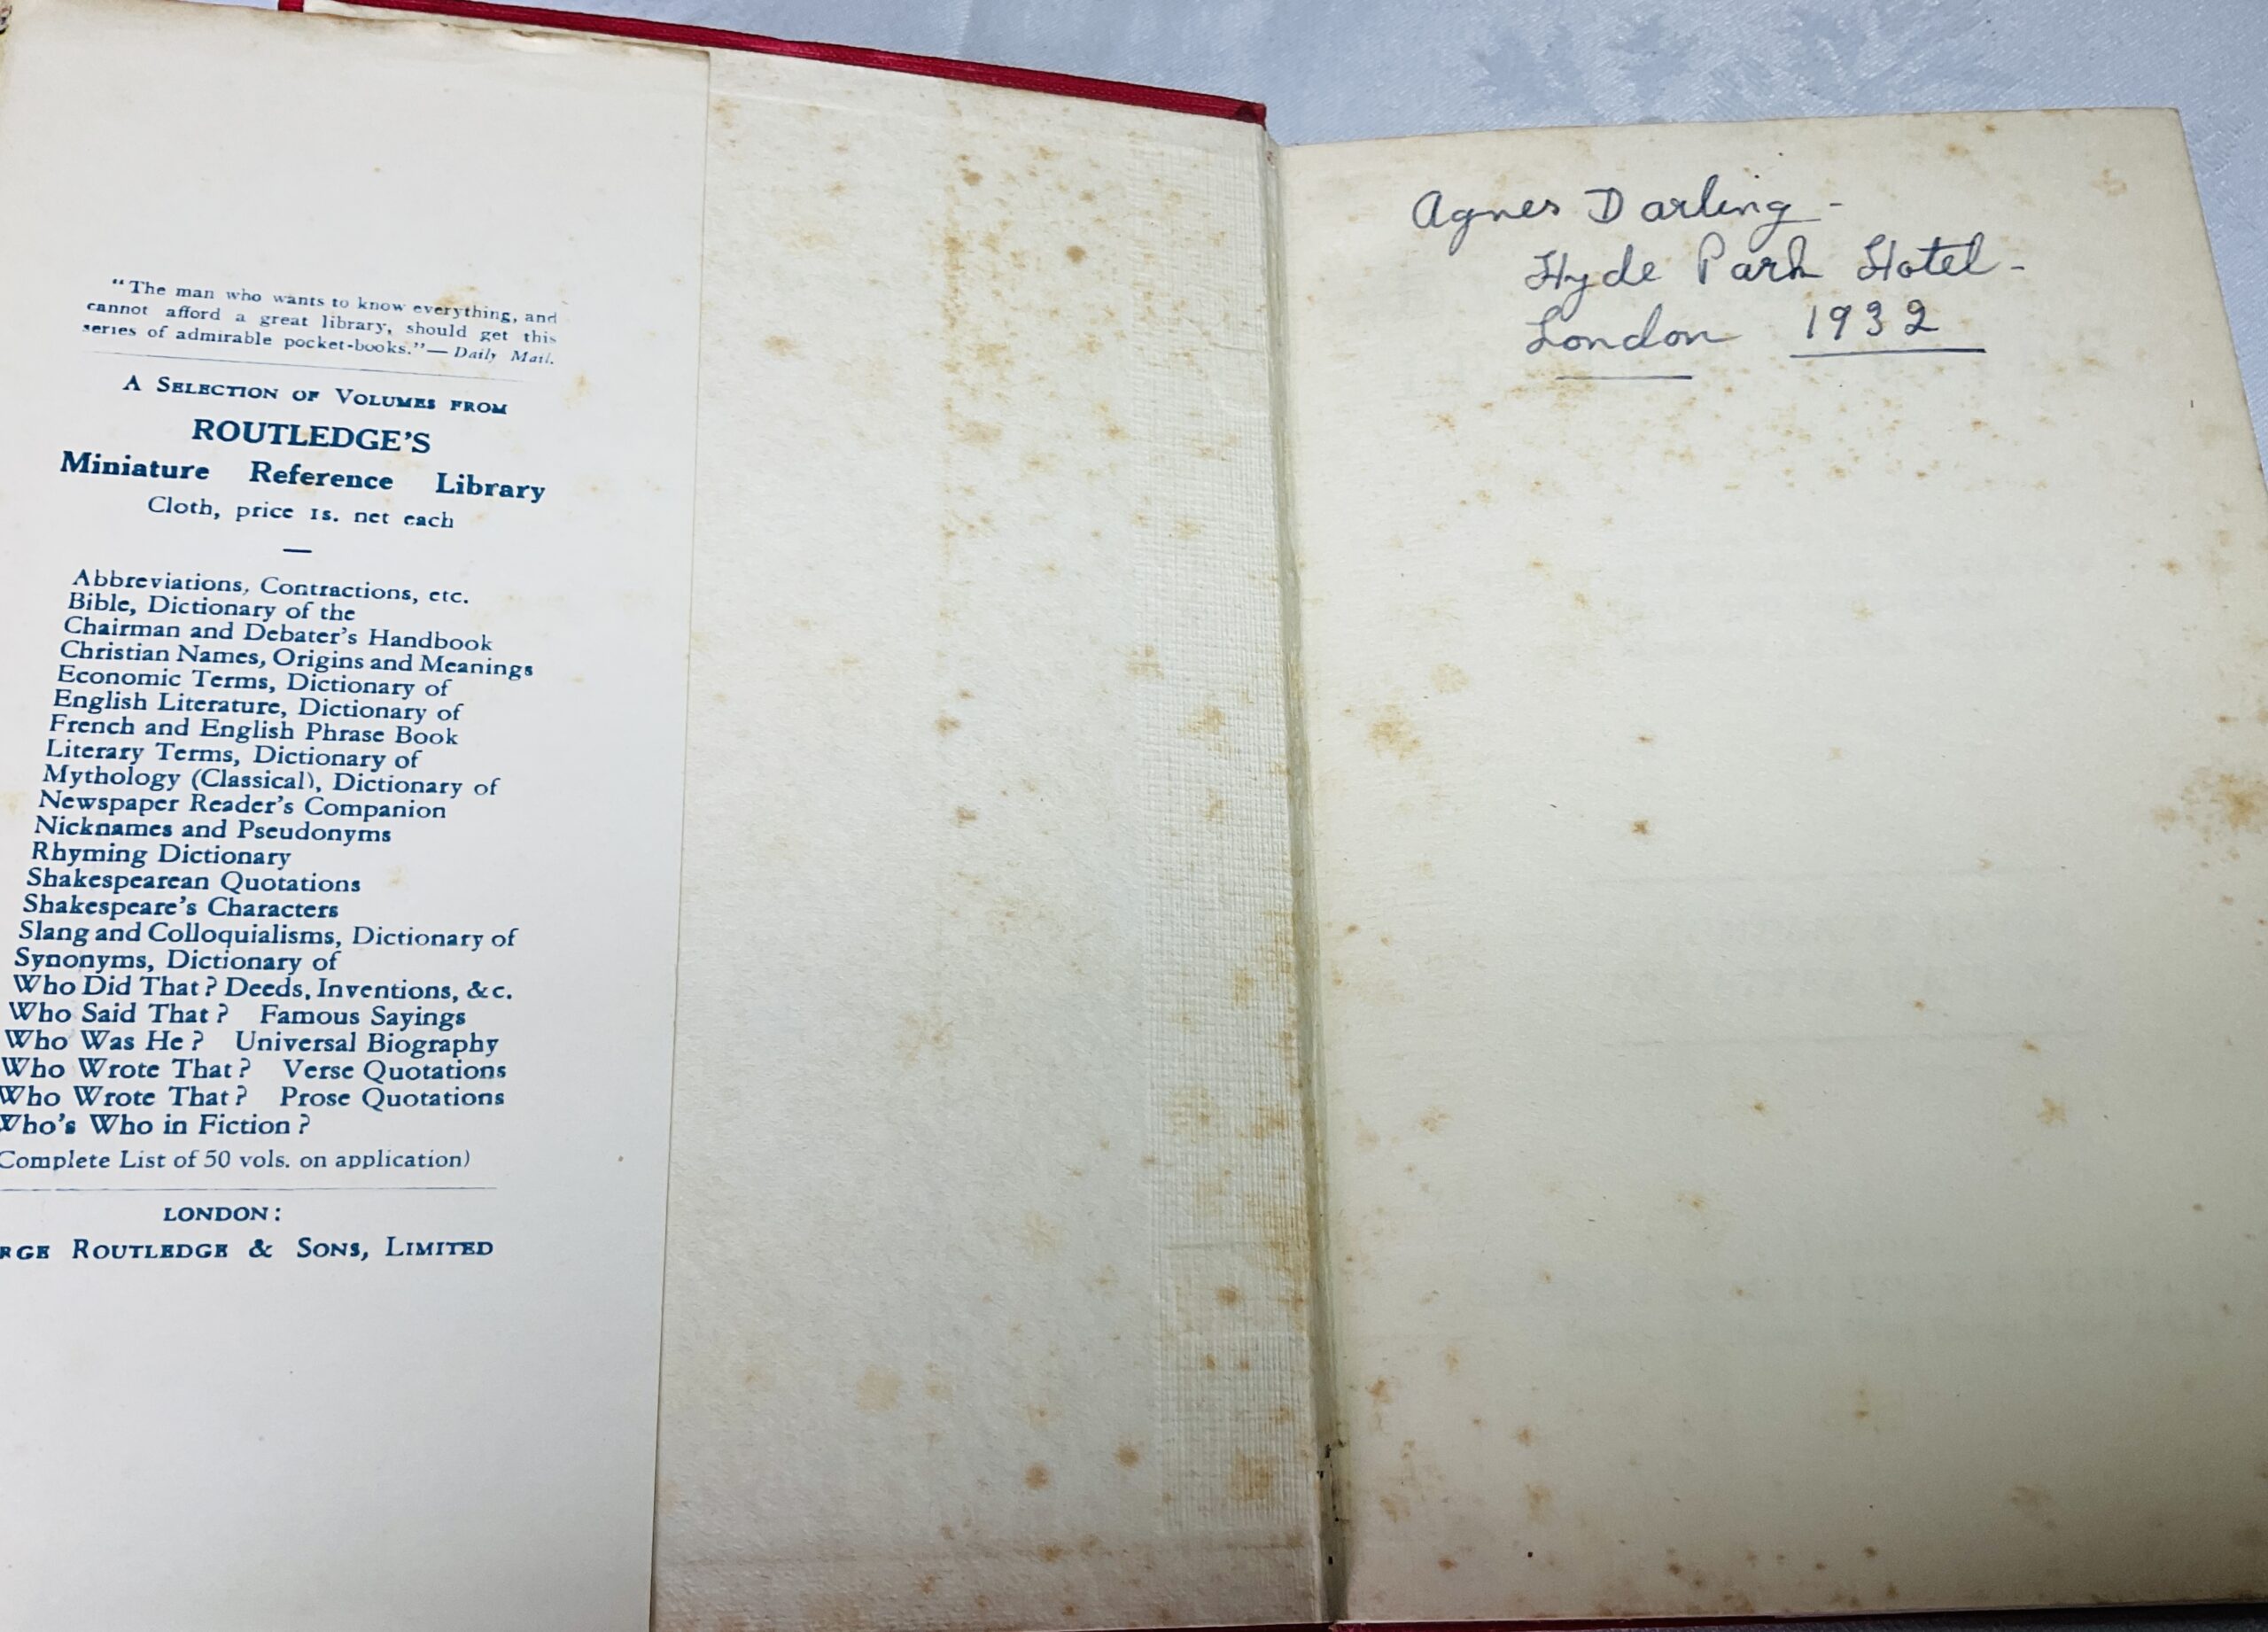 "The man who wants to know everything, and
cannot afford a great library, should get this
series of admirable pocket-books."—Daily Mail.
A SELECTION OF VOLUMES FROM
ROUTLEDGE'S
Miniature Reference Library
Cloth, price 1s. net each
—
Abbreviations, Contractions, etc.
Bible, Dictionary of the
Chairman and Debater's Handbook
Christian Names, Origins and Meanings
Economic Terms, Dictionary of
English Literature, Dictionary of
French and English Phrase Book
Literary Terms, Dictionary of
Mythology (Classical), Dictionary of
Newspaper Reader's Companion
Nicknames and Pseudonyms
Rhyming Dictionary
Shakespearean Quotations
Shakespeare's Characters
Slang and Colloquialisms, Dictionary of
Synonyms, Dictionary of
Who Did That? Deeds, Inventions, &c.
Who Said That? Famous Sayings
Who Was He? Universal Biography
Who Wrote That? Verse Quotations
Who Wrote That? Prose Quotations
Who's Who in Fiction?
Complete List of 50 vols. on application)
LONDON:
RGE ROUTLEDGE & SONS, LIMITED
Agnes Darling -
Hyde Park Hotel -
London 1932